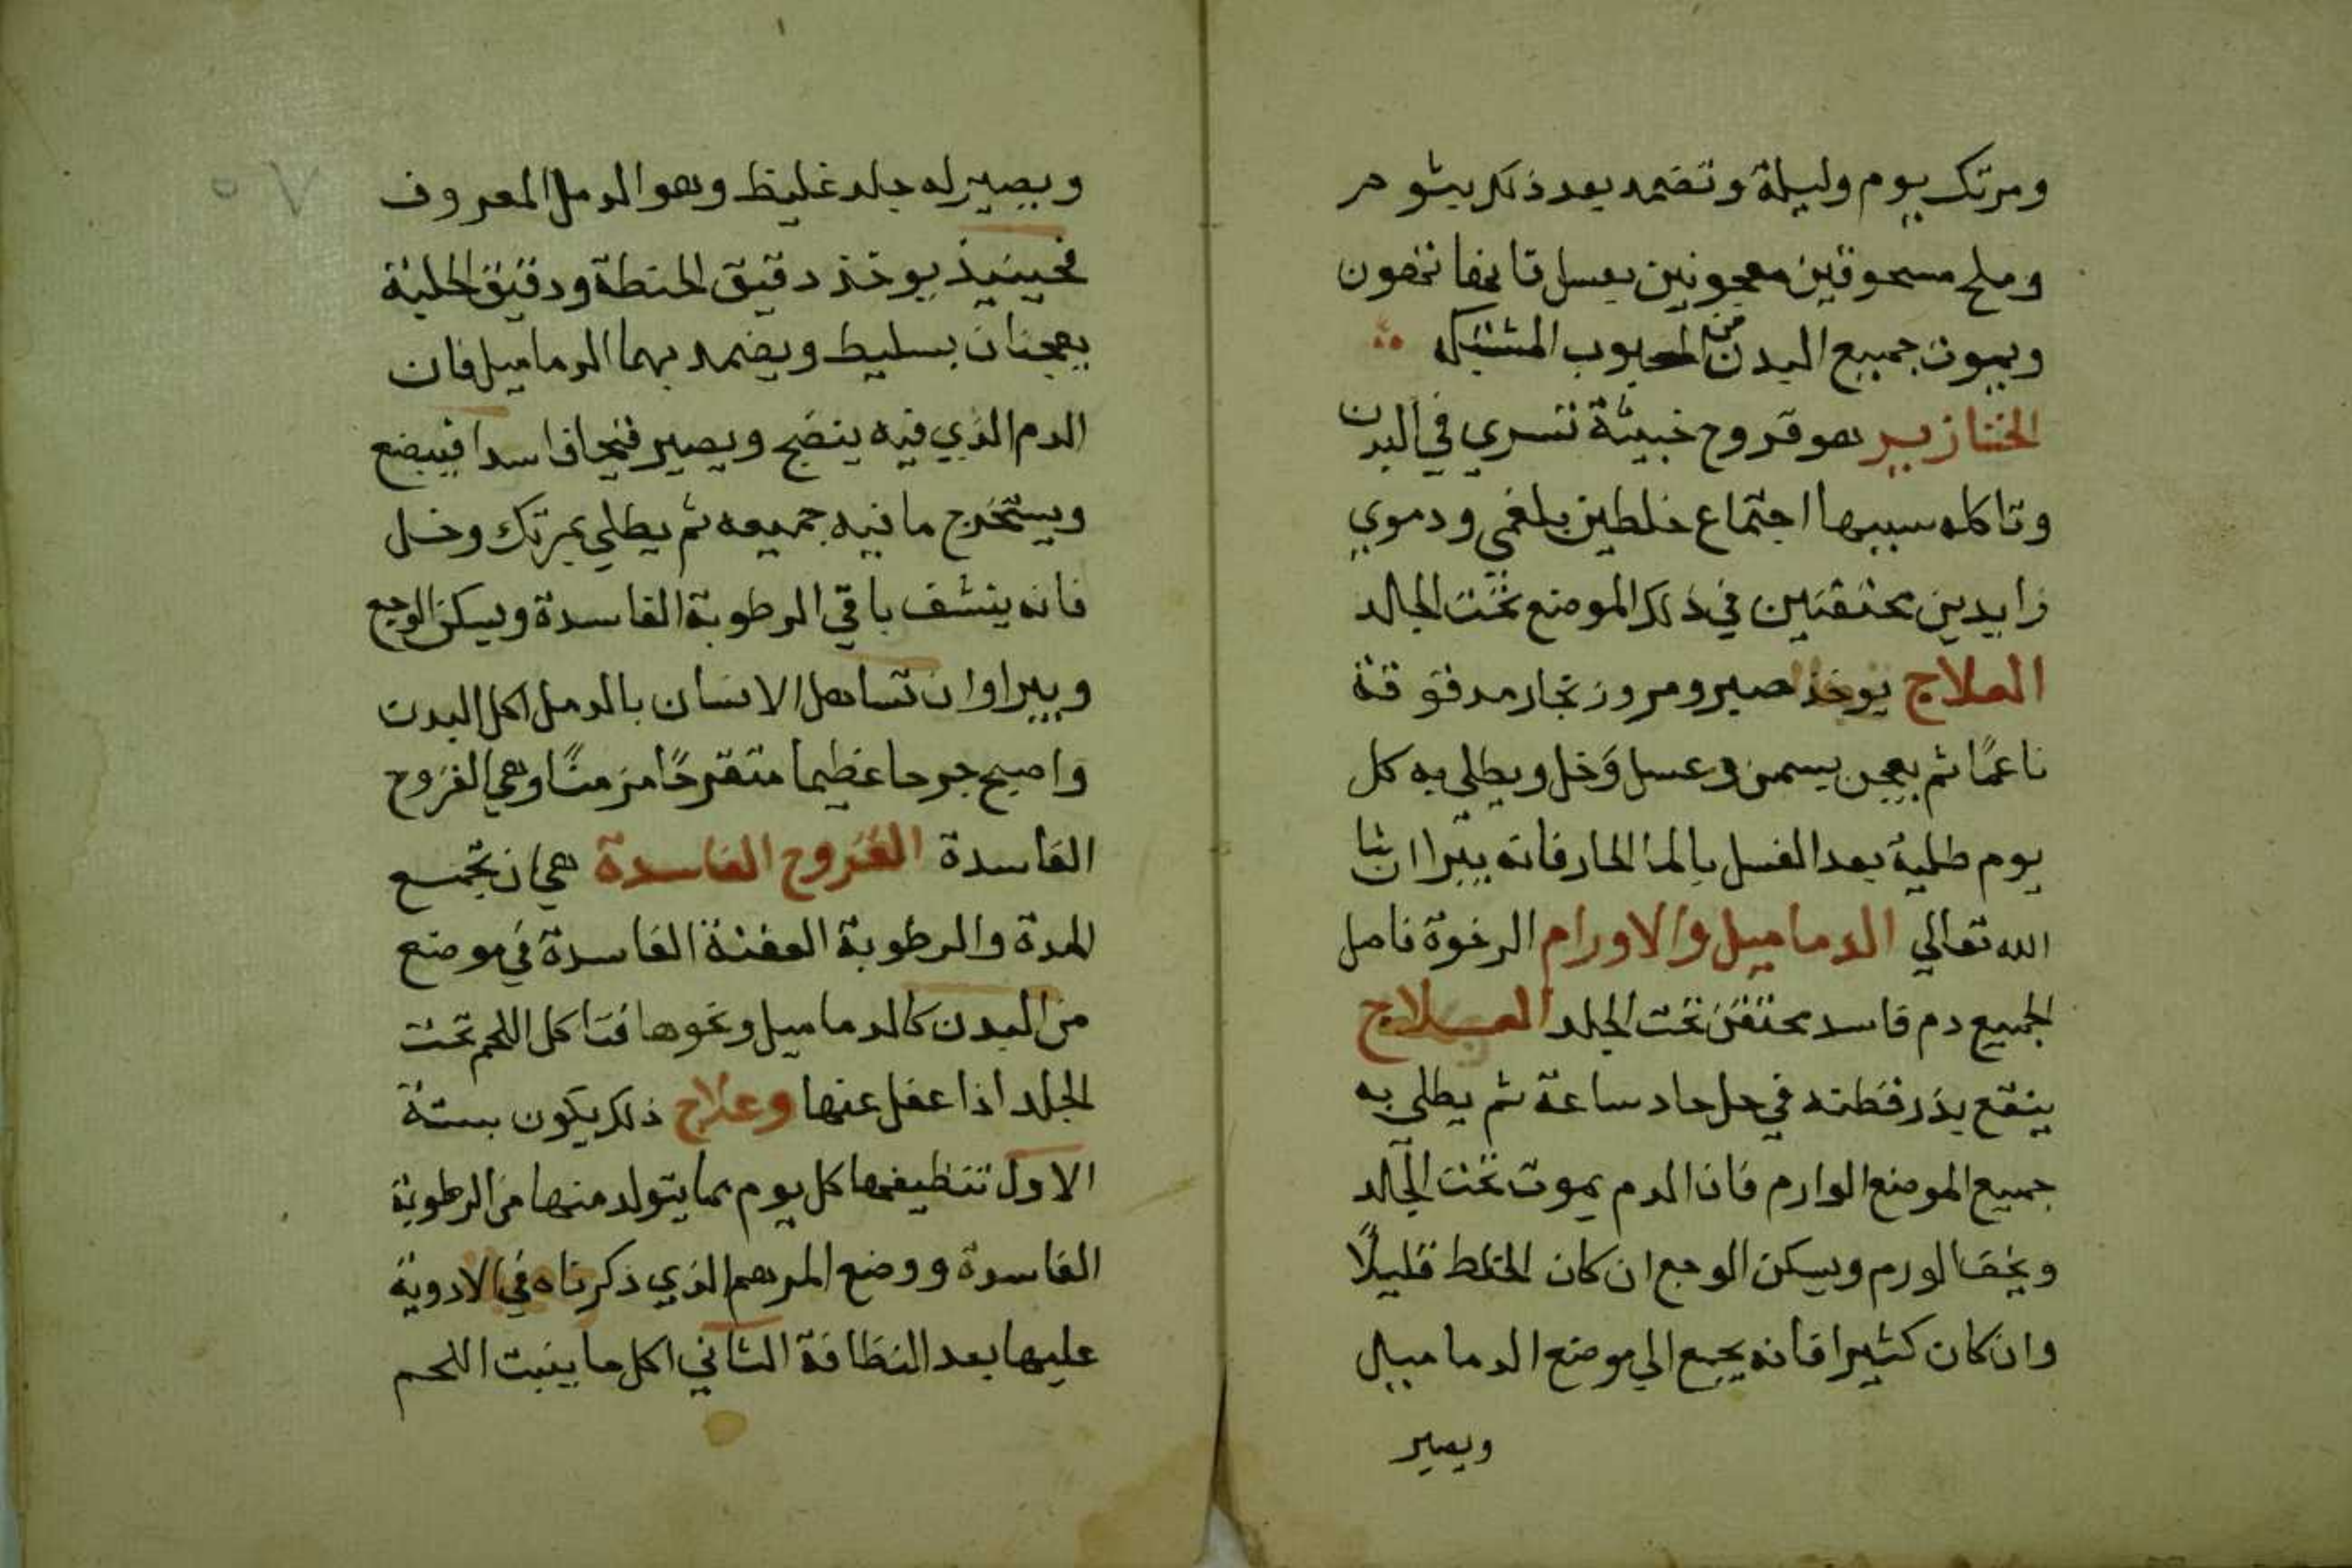 ومرتك يوم وليلة وتضمد بعد ذلك بثوم
وملح مسحوقين معجونين بعسل فانها تخصون
ويموت جميع البدن من الحبوب المشتبكه
الخنازير هو قروح خبيثة تسري في البدن
وتاكله سببها اجتماع خلطين بلغمي ودموي
زايدين محتقنين في ذلك الموضع تحت الجلد
العلاج يوخذ صبر ومر وزنجار مدقوقة
ناعمًا ثم يعجن بسمن وعسل وخل ويطلي به كل
يوم طلية بعد الغسل بالما الحار فانه يبرا ان شا
الله تعالي الدماميل والاورام الرخوة فاصل
الجميع دم فاسد محتقن تحت الجلد العلاج
ينقع بذر قطنه في خل حاد ساعة ثم يطلى به
جميع الموضع الوارم فان الدم يموت تحت الجلد
ويخف الورم ويسكن الوجع ان كان الخلط قليلًا
وان كان كثيرا فانه يجمع الي موضع الدماميل
ويصير
٥٧
ويصير له جلد غليظ وهو الدمل المعروف
فحينيذ يوخذ دقيق الحنطة ودقيق الحلبة
يعجنان بسليط ويضمد بهما الدماميل فان
الدم الذي فيه ينضج ويصير قيحا فاسدا فيبضع
ويستخرج ما فيه جميعه ثم يطلي بمرتك وخل
فانه ينشف باقي الرطوبة الفاسدة ويسكن الوجع
ويبرا وان تساهل الانسان بالدمل اكل البدن
واصبح جرحا عظيما متقرحًا مزمنًا وهي القروح
الفاسدة القروح الفاسدة هي ان تجتمع
المدة والرطوبة العفنة الفاسدة في موضع
من البدن كالدماميل ونحوها فتاكل اللحم تحت
الجلد اذا غفل عنها وعلاج ذلك يكون بستة
الاول تنظيفها كل يوم مما يتولد منها من الرطوبة
الفاسدة ووضع المرهم الذي ذكرناه في الادوية
عليها بعد النظافة الثاني اكل ما ينبت اللحم